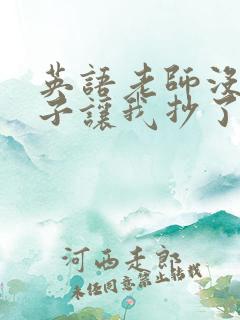 英語老師沒
子讓我抄了
河西走郎
未经同意禁止转载